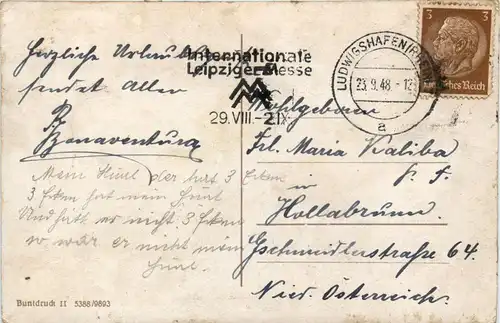 Herzliche
sendet Allen
P. Bonaventura
Internationale
Leipziger Messe
MM
29.VIII.-2.IX.
LUDWIGSHAFEN(RHEIN)
23.9.48.-12
a
3 3
Deutsches Reich
Wohlgeboren
Frl. Maria Kaliba
in
Hollabrunn.
Gschmeidlerstraße 64.
Nied. Österreich.
Mein der hat 3 Ecken
3 Ecken hat mein
Und hätt er nicht 3 Ecken
so wär er nicht mein
Buntdruck II 5388/9893